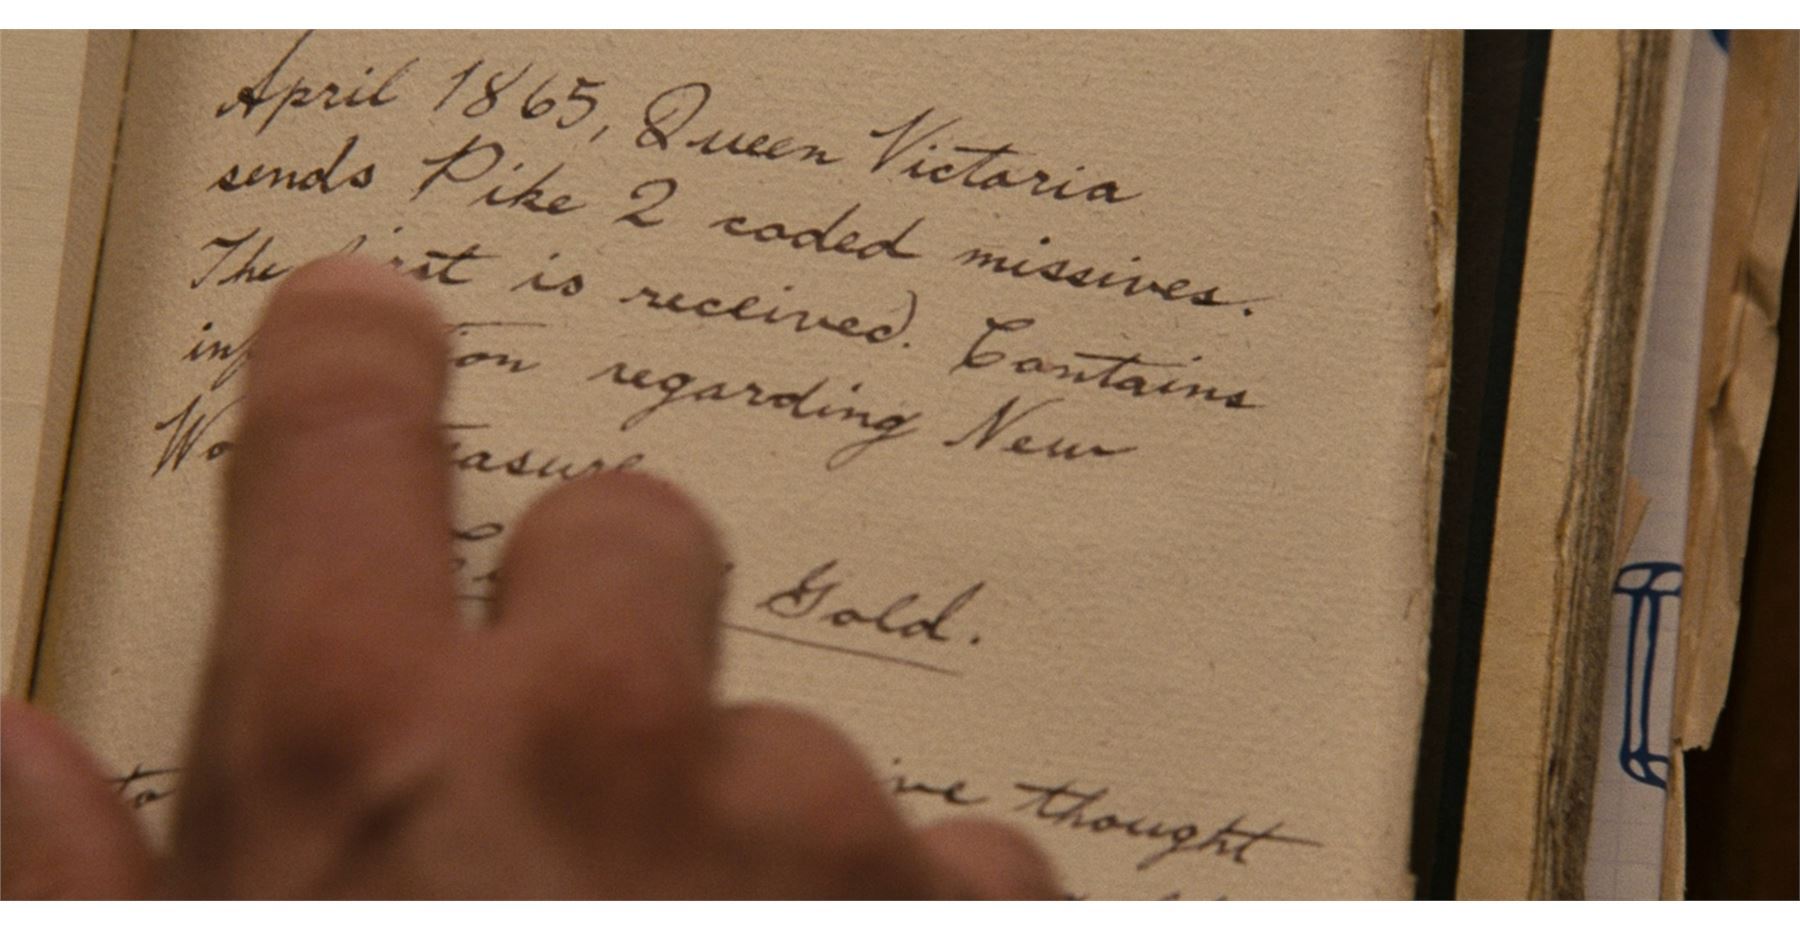 April 1865, Queen Victoria
sends Pike 2 coded missives.
The first is received. Contains
regarding New
Gold.
to thought